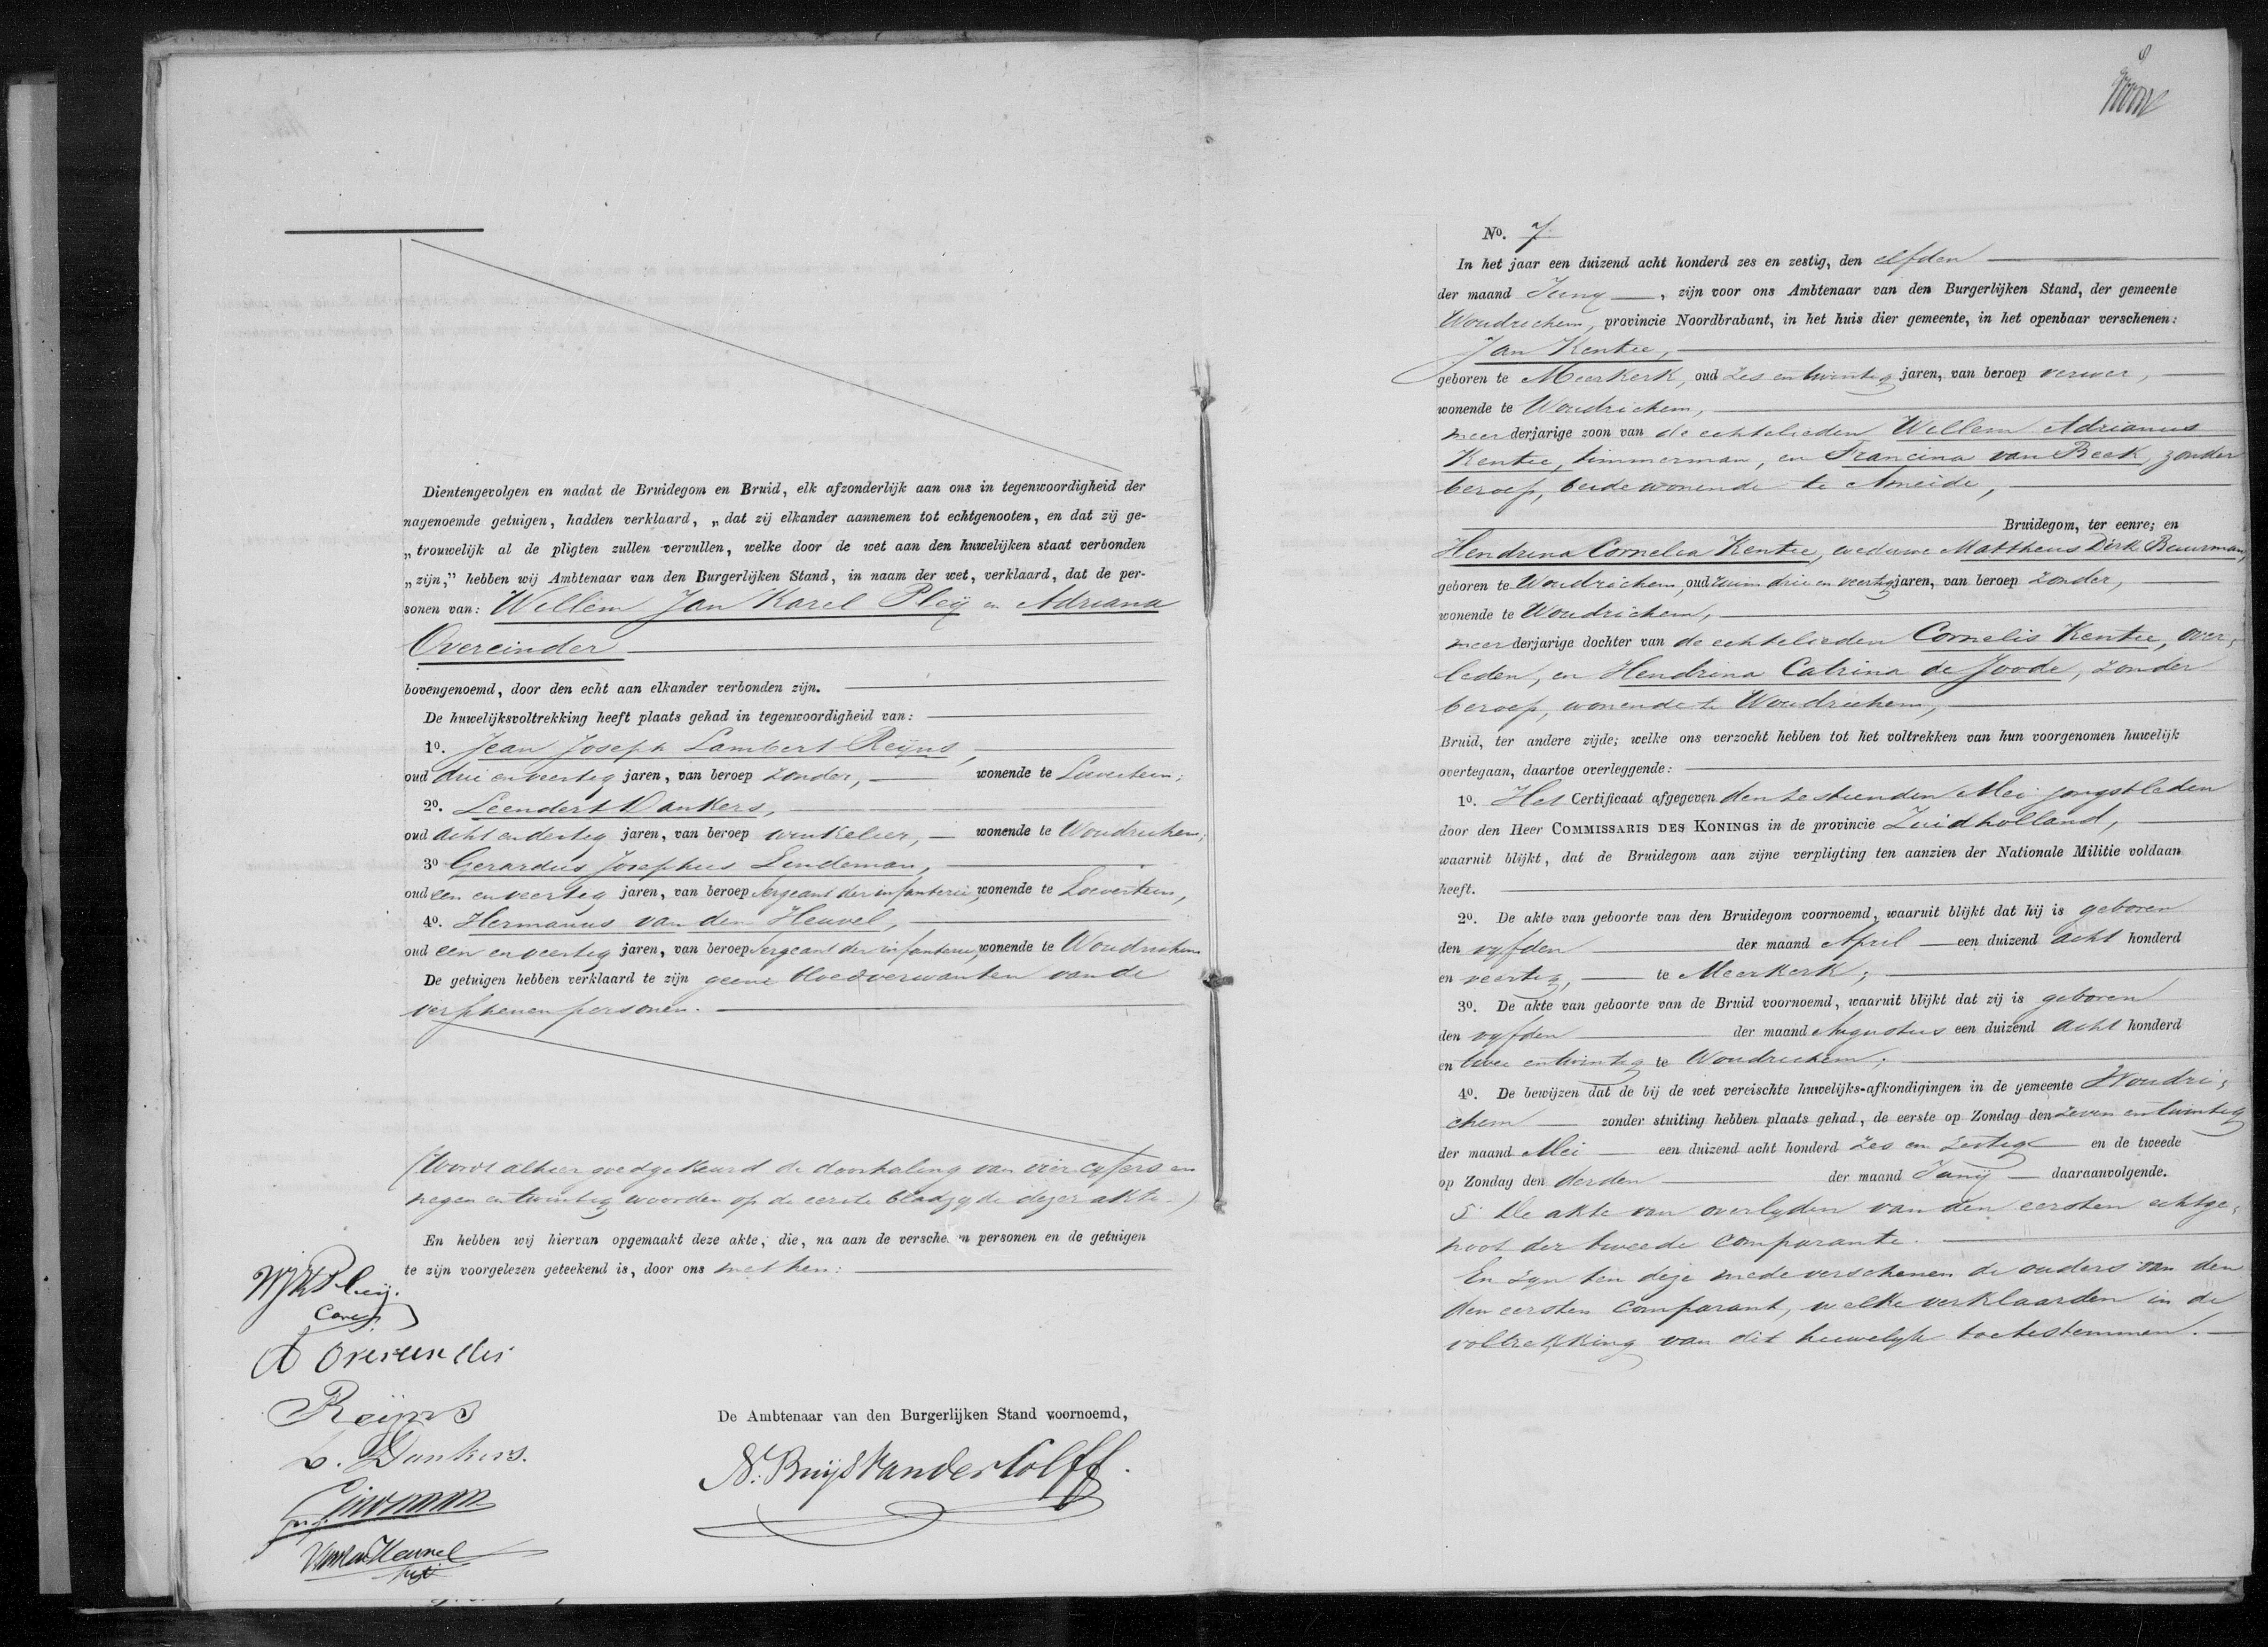 Dientengevolgen en nadat de Bruidegom en Bruid, elk afzonderlijk aan ons in tegenwoordigheid der
nagenoemde getuigen, hadden verklaard, „dat zij elkander aannemen tot echtgenooten, en dat zij ge-
„trouwelijk al de pligten zullen vervullen, welke door de wet aan den huwelijken staat verbonden
„zijn,” hebben wij Ambtenaar van den Burgerlijken Stand, in naam der wet, verklaard, dat de per-
sonen van: Willem Jan Karel Pleÿ en Adriana
Overeinder
bovengenoemd, door den echt aan elkander verbonden zijn.
De huwelijksvoltrekking heeft plaats gehad in tegenwoordigheid van:
1o. Jean Joseph Lambert Reÿns,
oud drie en veertig jaren, van beroep zonder, wonende te Loevestein;
2o. Leendert Dankers,
oud acht en dertig jaren, van beroep winkelier, wonende te Woudrichem;
3o Gerardus Josephus Lindeman,
oud een en veertig jaren, van beroep Sergeant der infanterie, wonende te Loevestein,
4o. Hermanus van den Heuvel,
oud een en veertig jaren, van beroep Sergeant der infanterie, wonende te Woudrichem
De getuigen hebben verklaard te zijn geene bloedverwanten van de
verschenen personen.
(Wordt alhier goedgekeurd de doorhaling van vier cyfers en
negen en twintig woorden op de eerste bladzyde dezer akte.)
En hebben wij hiervan opgemaakt deze akte, die, na aan de verschenen personen en de getuigen
te zijn voorgelezen geteekend is, door ons met hen:
WJK Pleij.
A Overeinder
Reijns
L. Dankers.
Lindeman
Van den Heuvel
De Ambtenaar van den Burgerlijken Stand voornoemd,
N. Buijs van der Colff.
No. 7.
In het jaar een duizend acht honderd zes en zestig, den elfden
der maand Juny, zijn voor ons Ambtenaar van den Burgerlijken Stand, der gemeente
Woudrichem, provincie Noordbrabant, in het huis dier gemeente, in het openbaar verschenen:
Jan Kentie,
geboren te Meerkerk, oud zes en twintig jaren, van beroep verwer,
wonende te Woudrichem,
meerderjarige zoon van de echtelieden Willem Adrianus
Kentie, timmerman, en Francina van Beek, zonder
beroep, beide wonende te Ameide,
Bruidegom, ter eenre; en
Hendrina Cornelia Kentie, weduwe Mattheus Dirk Buurman,
geboren te Woudrichem, oud ruim drie en veertig jaren, van beroep zonder,
wonende te Woudrichem,
meerderjarige dochter van de echtelieden Cornelis Kentie, over,
leden, en Hendrina Catrina de Joode, zonder
beroep, wonende te Woudrichem,
Bruid, ter andere zijde; welke ons verzocht hebben tot het voltrekken van hun voorgenomen huwelijk
overtegaan, daartoe overleggende:
1o. Het Certificaat afgegeven den zestienden Mei jongstleden
door den Heer COMMISSARIS DES KONINGS in de provincie Zuidholland,
waaruit blijkt, dat de Bruidegom aan zijne verpligting ten aanzien der Nationale Militie voldaan
heeft.
2o. De akte van geboorte van den Bruidegom voornoemd, waaruit blijkt dat hij is geboren
den vyfden der maand April een duizend acht honderd
en veertig, te Meerkerk;
3o. De akte van geboorte van de Bruid voornoemd, waaruit blijkt dat zij is geboren
den vyfden der maand Augustus een duizend acht honderd
en twee en twintig te Woudrichem;
4o. De bewijzen dat de bij de wet vereischte huwelijks-afkondigingen in de gemeente Woudri,
chem zonder stuiting hebben plaats gehad, de eerste op Zondag den zeven en twintig
der maand Mei een duizend acht honderd zes en zestig en de tweede
op Zondag den derden der maand Junij daaraanvolgende.
5. De akte van overlyden van den eersten echtge,
noot der tweede comparante.
En zyn ten deze mede verschenen de ouders van den
den eersten comparant, welke verklaarden in de
voltrekking van dit huwelyk toetestemmen.